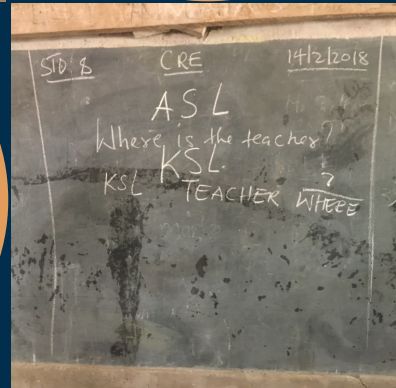 STD: 8 CRE 14/2/2018
ASL
Where is the teacher?
KSL.
KSL TEACHER ?
WHERE